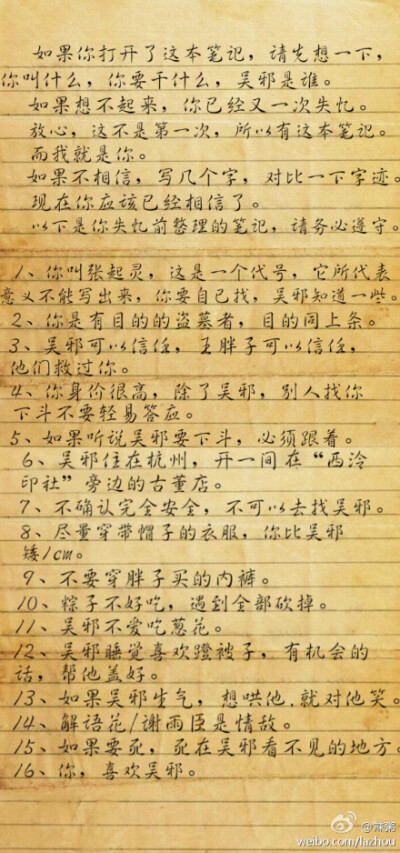 如果你打开了这本笔记，请先想一下，
你叫什么，你要干什么，吴邪是谁。
如果想不起来，你已经又一次失忆。
放心，这不是第一次，所以有这本笔记。
而我就是你。
如果不相信，写几个字，对比一下字迹。
现在你应该已经相信了。
以下是你失忆前整理的笔记，请务必遵守。
1、你叫张起灵，这是一个代号，它所代表
意义不能写出来，你要自己找，吴邪知道一些。
2、你是有目的的盗墓者，目的同上条。
3、吴邪可以信任，王胖子可以信任，
他们救过你。
4、你身价很高，除了吴邪，别人找你
下斗不要轻易答应。
5、如果听说吴邪要下斗，必须跟着。
6、吴邪住在杭州，开一间在“西泠
印社”旁边的古董店。
7、不确认完全安全，不可以去找吴邪。
8、尽量穿带帽子的衣服，你比吴邪
矮1cm。
9、不要穿胖子买的内裤。
10、粽子不好吃，遇到全部砍掉。
11、吴邪不爱吃葱花。
12、吴邪睡觉喜欢蹬被子，有机会的
话，帮他盖好。
13、如果吴邪生气，想哄他.就对他笑。
14、解语花/谢雨臣是情敌。
15、如果要死，死在吴邪看不见的地方。
16、你，喜欢吴邪。
weibo.com/lazhou